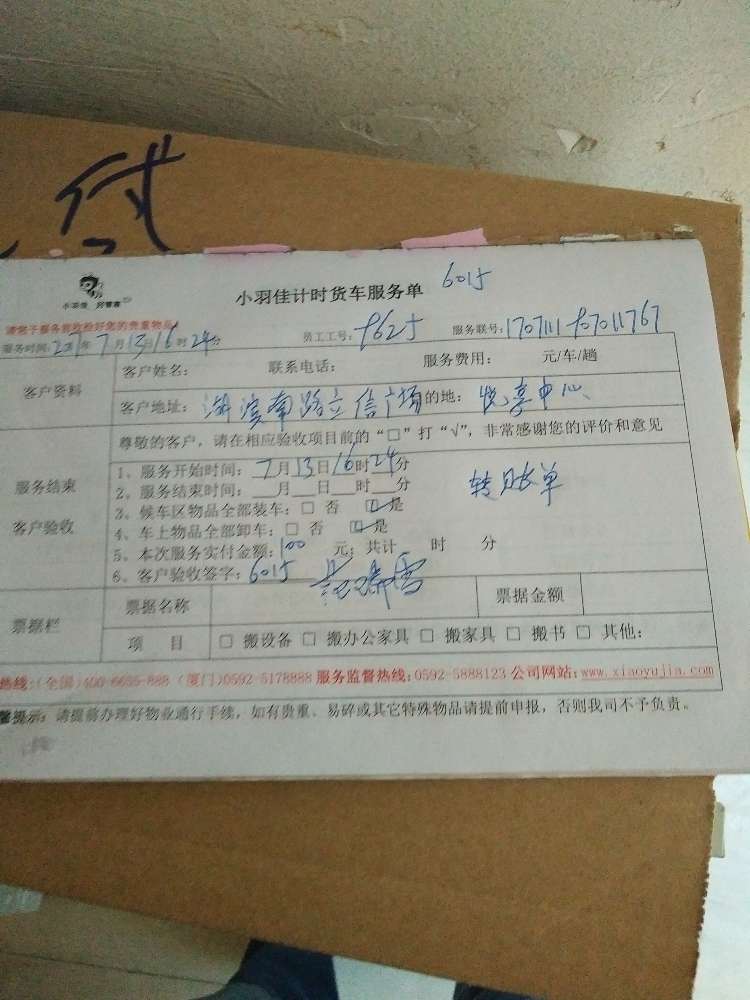 小羽佳 好管家
小羽佳计时货车服务单 6015
请您于服务前收捡好您的贵重物品
服务时间: 年7月13日16时24分 员工工号: 9625 服务联号:
客户资料 客户姓名: 联系电话: 服务费用: 元/车/趟
客户地址: 湖滨南路立信广场 的地: 悦享中心
尊敬的客户，请在相应验收项目前的“□”打“√”，非常感谢您的评价和意见
服务结束
客户验收
1、服务开始时间: 7月13日16时24分
2、服务结束时间: __月__日__时__分
转账单
3、候车区物品全部装车: □ 否 ☑是
4、车上物品全部卸车: □ 否 ☑是
5、本次服务实付金额: 100 元; 共计 时 分
6、客户验收签字: 6015
票据栏 票据名称 票据金额
项 目 □ 搬设备 □ 搬办公家具 □ 搬家具 □ 搬书 □ 其他:
热线:(全国)400-6655-888 (厦门)0592-5178888 服务监督热线:0592-5888123 公司网站:www.xiaoyujia.com
馨提示: 请提前办理好物业通行手续，如有贵重、易碎或其它特殊物品请提前申报，否则我司不予负责。